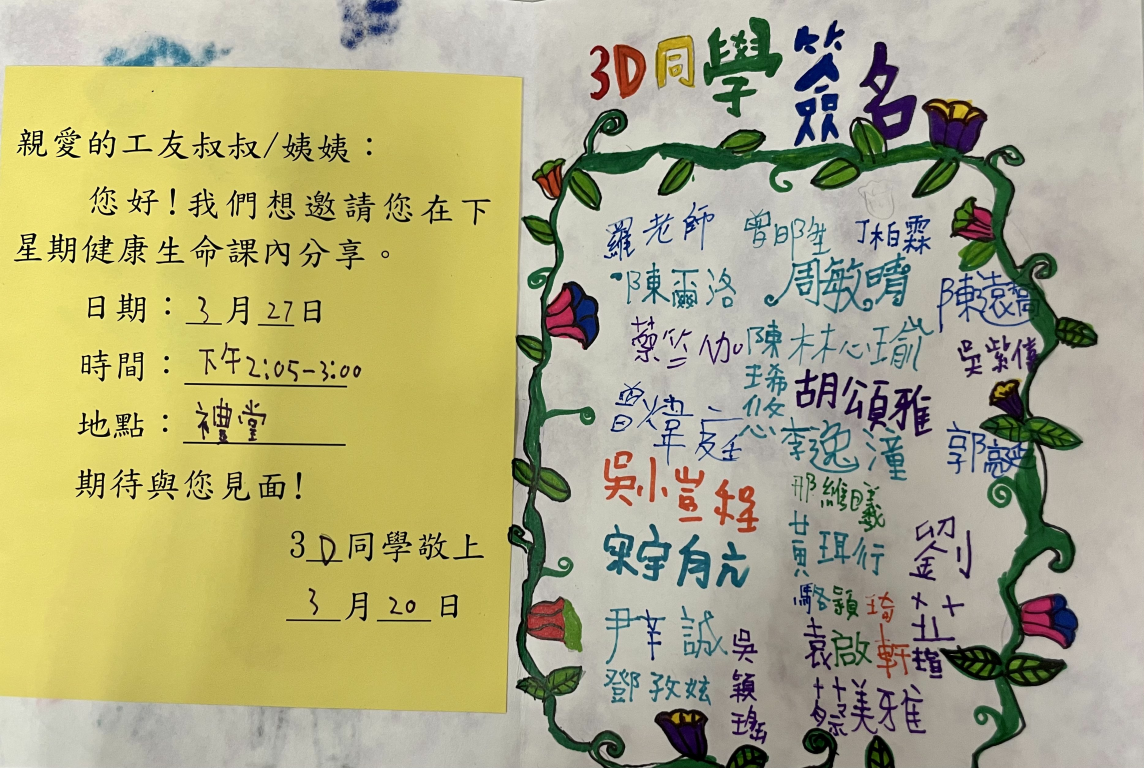 親愛的工友叔叔/姨姨：
您好!我們想邀請您在下
星期健康生命課內分享。
日期：3月27日
時間：下午2:05-3:00
地點：禮堂
期待與您見面!
3D同學敬上
3月20日
3D同學簽名
羅老師
丁柏霖
陳爾洛
周敏晴
林心瑜
陳琋悠
吳紫僖
胡頌雅
曾煒庭
李逸潼
吳小豈程
邢維曦
黃珥行
劉芷瑄
駱穎琦
尹莘誠
袁啟軒
鄧孜妶
吳穎瑤
蔡美雅